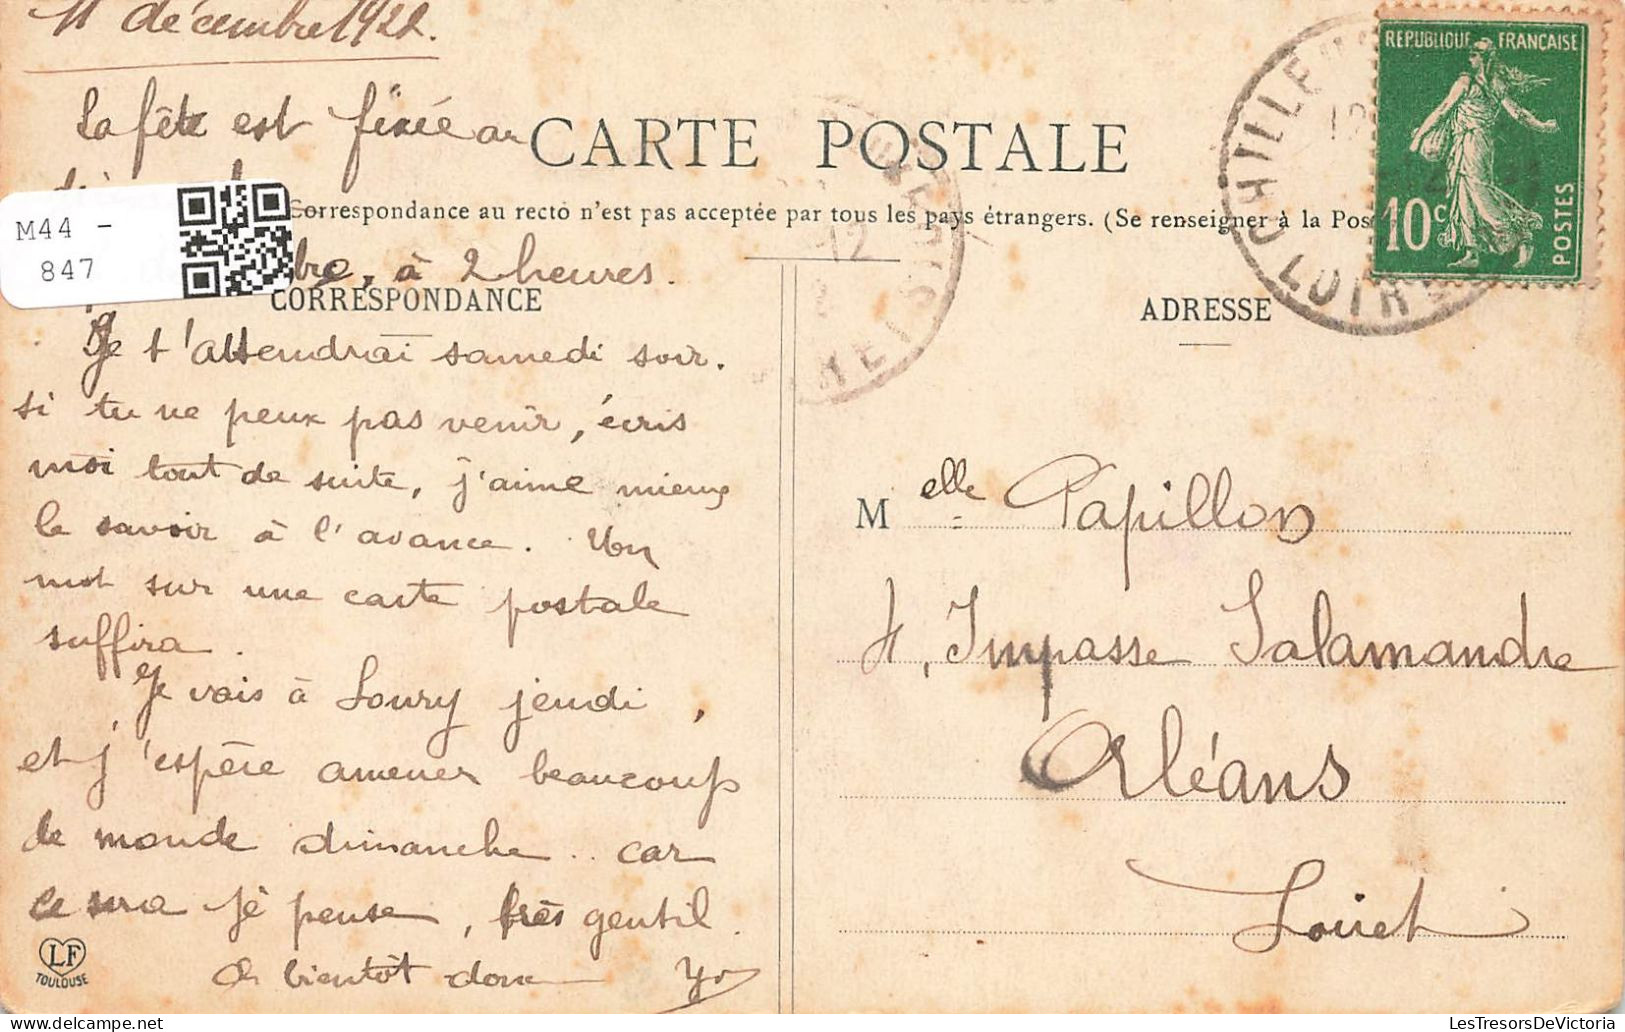 11 décembre 1922.
La fête est fixée au
CARTE POSTALE
Correspondance au recto n'est pas acceptée par tous les pays étrangers. (Se renseigner à la Pos
bre, à 2 heures.
CORRESPONDANCE
Je t'attendrai samedi soir.
si tu ne peux pas venir, écris
moi tout de suite, j'aime mieux
le savoir à l'avance. Un
mot sur une carte postale
suffira.
Je vais à Loury jeudi,
et j'espère amener beaucoup
de monde dimanche.. car
ce sera je pense, très gentil.
A bientôt donc Yv
LF
TOULOUSE
M44 -
847
REPUBLIQUE FRANÇAISE
10c
POSTES
CHILLEURS
LOIRET
12
ADRESSE
Melle Papillon
4, Impasse Salamandre
Orléans
Loiret
LesTresorsDeVictoria